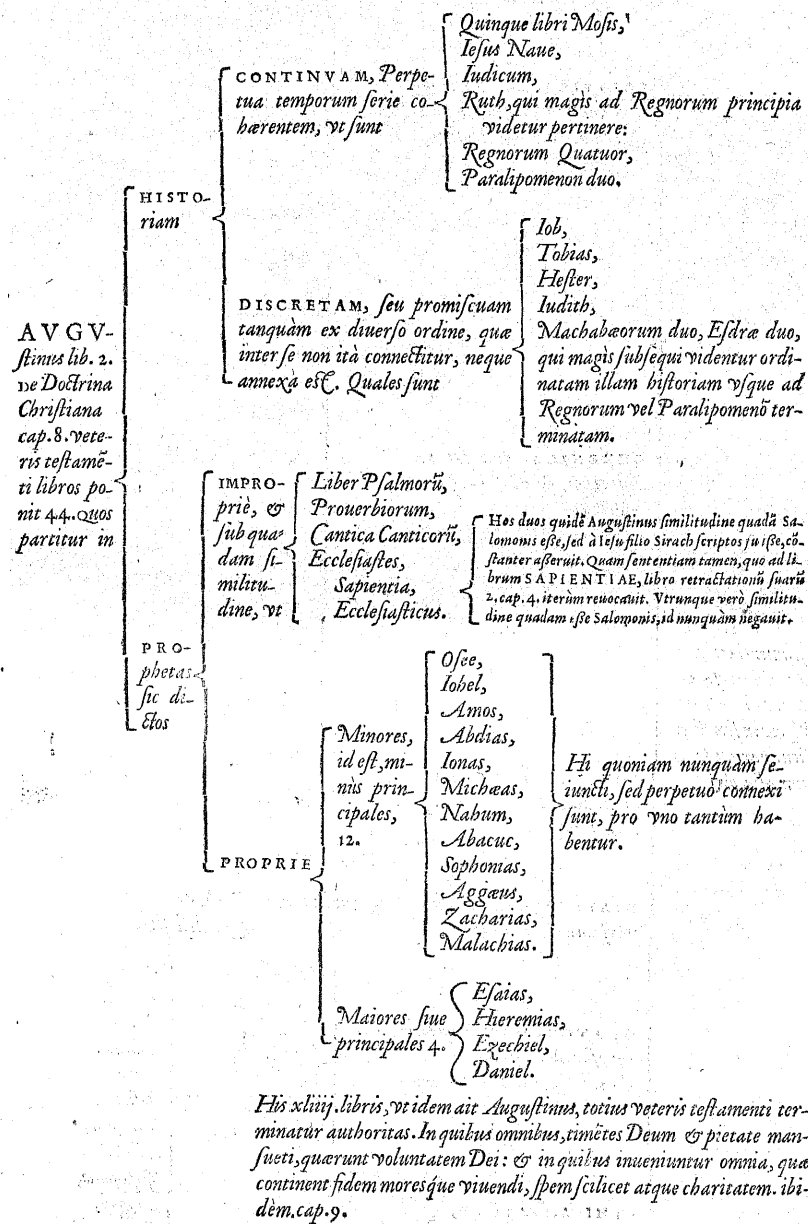 AVGV-
ſtinus lib. 2.
De Doctrina
Chriſtiana
cap. 8. vete-
ris teſtamē-
ti libros po-
nit 44. Quos
partitur in
HISTO-
riam
CONTINVAM, Perpe-
tua temporum ſerie co-
hærentem, vt ſunt
Quinque libri Moſis,
Ieſus Naue,
Iudicum,
Ruth, qui magis ad Regnorum principia
videtur pertinere:
Regnorum Quatuor,
Paralipomenon duo.
DISCRETAM, ſeu promiſcuam
tanquàm ex diuerſo ordine, quæ
inter ſe non ità connectitur, neque
annexa eſt. Quales ſunt
Iob,
Tobias,
Heſter,
Iudith,
Machabæorum duo, Eſdræ duo,
qui magis ſubſequi videntur ordi-
natam illam hiſtoriam vſque ad
Regnorum vel Paralipomenō ter-
minatam.
PRO-
phetas
ſic di-
ctos
IMPRO-
priè, &
ſub qua-
dam ſi-
militu-
dine, vt
Liber Pſalmorū,
Prouerbiorum,
Cantica Canticorū,
Eccleſiaſtes,
Sapientia,
Eccleſiaſticus.
Hos duos quidē Auguſtinus ſimilitudine quadā Sa-
lomonis eſſe, ſed à Ieſu filio Sirach ſcriptos fuiſſe, cō-
ſtanter aſſeruit. Quam ſententiam tamen, quo ad li-
brum SAPIENTIAE, libro retractationū ſuarū
2. cap. 4. iterùm reuocauit. Vtrunque verò ſimilitu-
dine quadam eſſe Salomonis, id nunquàm negauit.
PROPRIE
Minores,
id eſt, mi-
nùs prin-
cipales,
12.
Oſee,
Iohel,
Amos,
Abdias,
Ionas,
Michæas,
Nahum,
Abacuc,
Sophonias,
Aggæus,
Zacharias,
Malachias.
Hi quoniam nunquàm ſe-
iuncti, ſed perpetuò connexi
ſunt, pro vno tantùm ha-
bentur.
Maiores ſiue
principales 4.
Eſaias,
Hieremias,
Ezechiel,
Daniel.
His xliiij. libris, vt idem ait Auguſtinus, totius veteris teſtamenti ter-
minatur authoritas. In quibus omnibus, timētes Deum & pietate man-
ſueti, quærunt voluntatem Dei: & in quibus inueniuntur omnia, quæ
continent fidem moresq́ue viuendi, ſpem ſcilicet atque charitatem. ibi-
dèm. cap. 9.